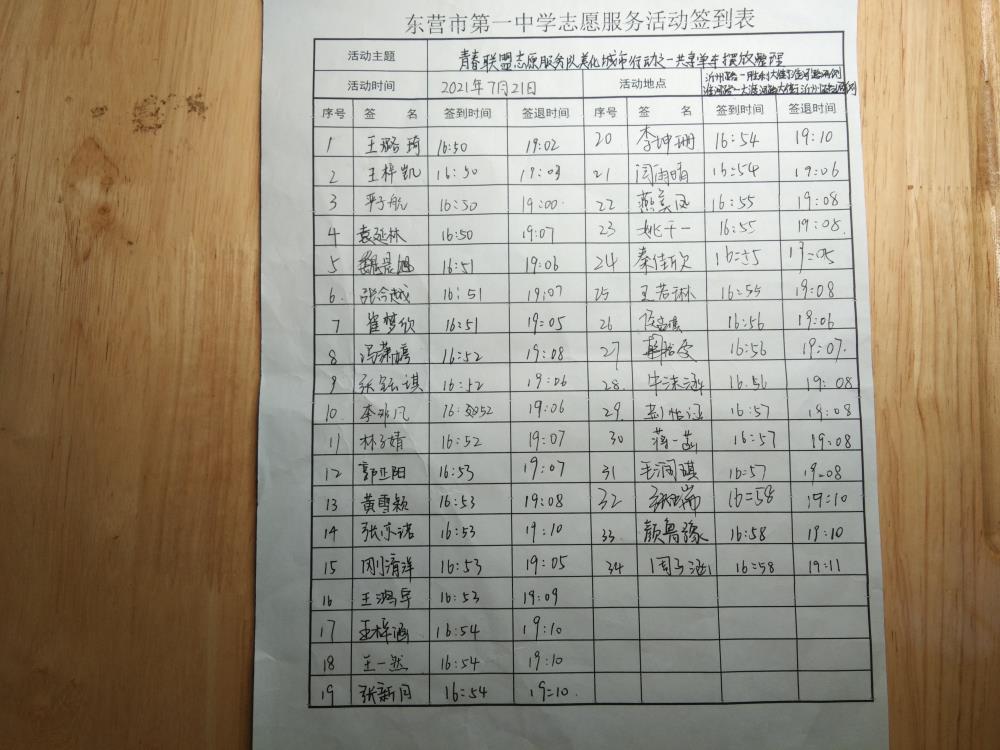 东营市第一中学志愿服务活动签到表
活动主题 青春联盟志愿服务队美化城市行动之一共享单车摆放整理
活动时间 2021年7月21日 活动地点
序号 签 名 签到时间 签退时间 序号 签 名 签到时间 签退时间
1 王璐琦 16:50 19:02 20 李坤珊 16:54 19:10
2 王梓凯 16:50 19:03 21 闫雨晴 16:54 19:06
3 16:50 19:00 22 燕奕凤 16:55 19:08
4 袁延林 16:50 19:07 23 姚千一 16:55 19:08
5 16:51 19:06 24 秦佳欣 16:55 19:05
6 张令越 16:51 19:07 25 王若琳 16:55 19:08
7 崔梦欣 16:51 19:05 26 16:56 19:06
8 冯萧嫱 16:52 19:08 27 16:56 19:07
9 张钰琪 16:52 19:06 28 牛沫涵 16:56 19:08
10 16:52 19:06 29 彭怡涵 16:57 19:08
11 林子婧 16:52 19:07 30 蒋一菡 16:57 19:08
12 郭亚阳 16:53 19:07 31 毛润琪 16:57 19:08
13 黄雪颖 16:53 19:08 32 16:58 19:10
14 张亦诺 16:53 19:10 33 颜鲁豫 16:58 19:10
15 刚清洋 16:53 19:05 34 周子涵 16:58 19:11
16 王鸿早 16:53 19:09
17 王梓涵 16:54 19:10
18 王一然 16:54 19:10
19 张新月 16:54 19:10